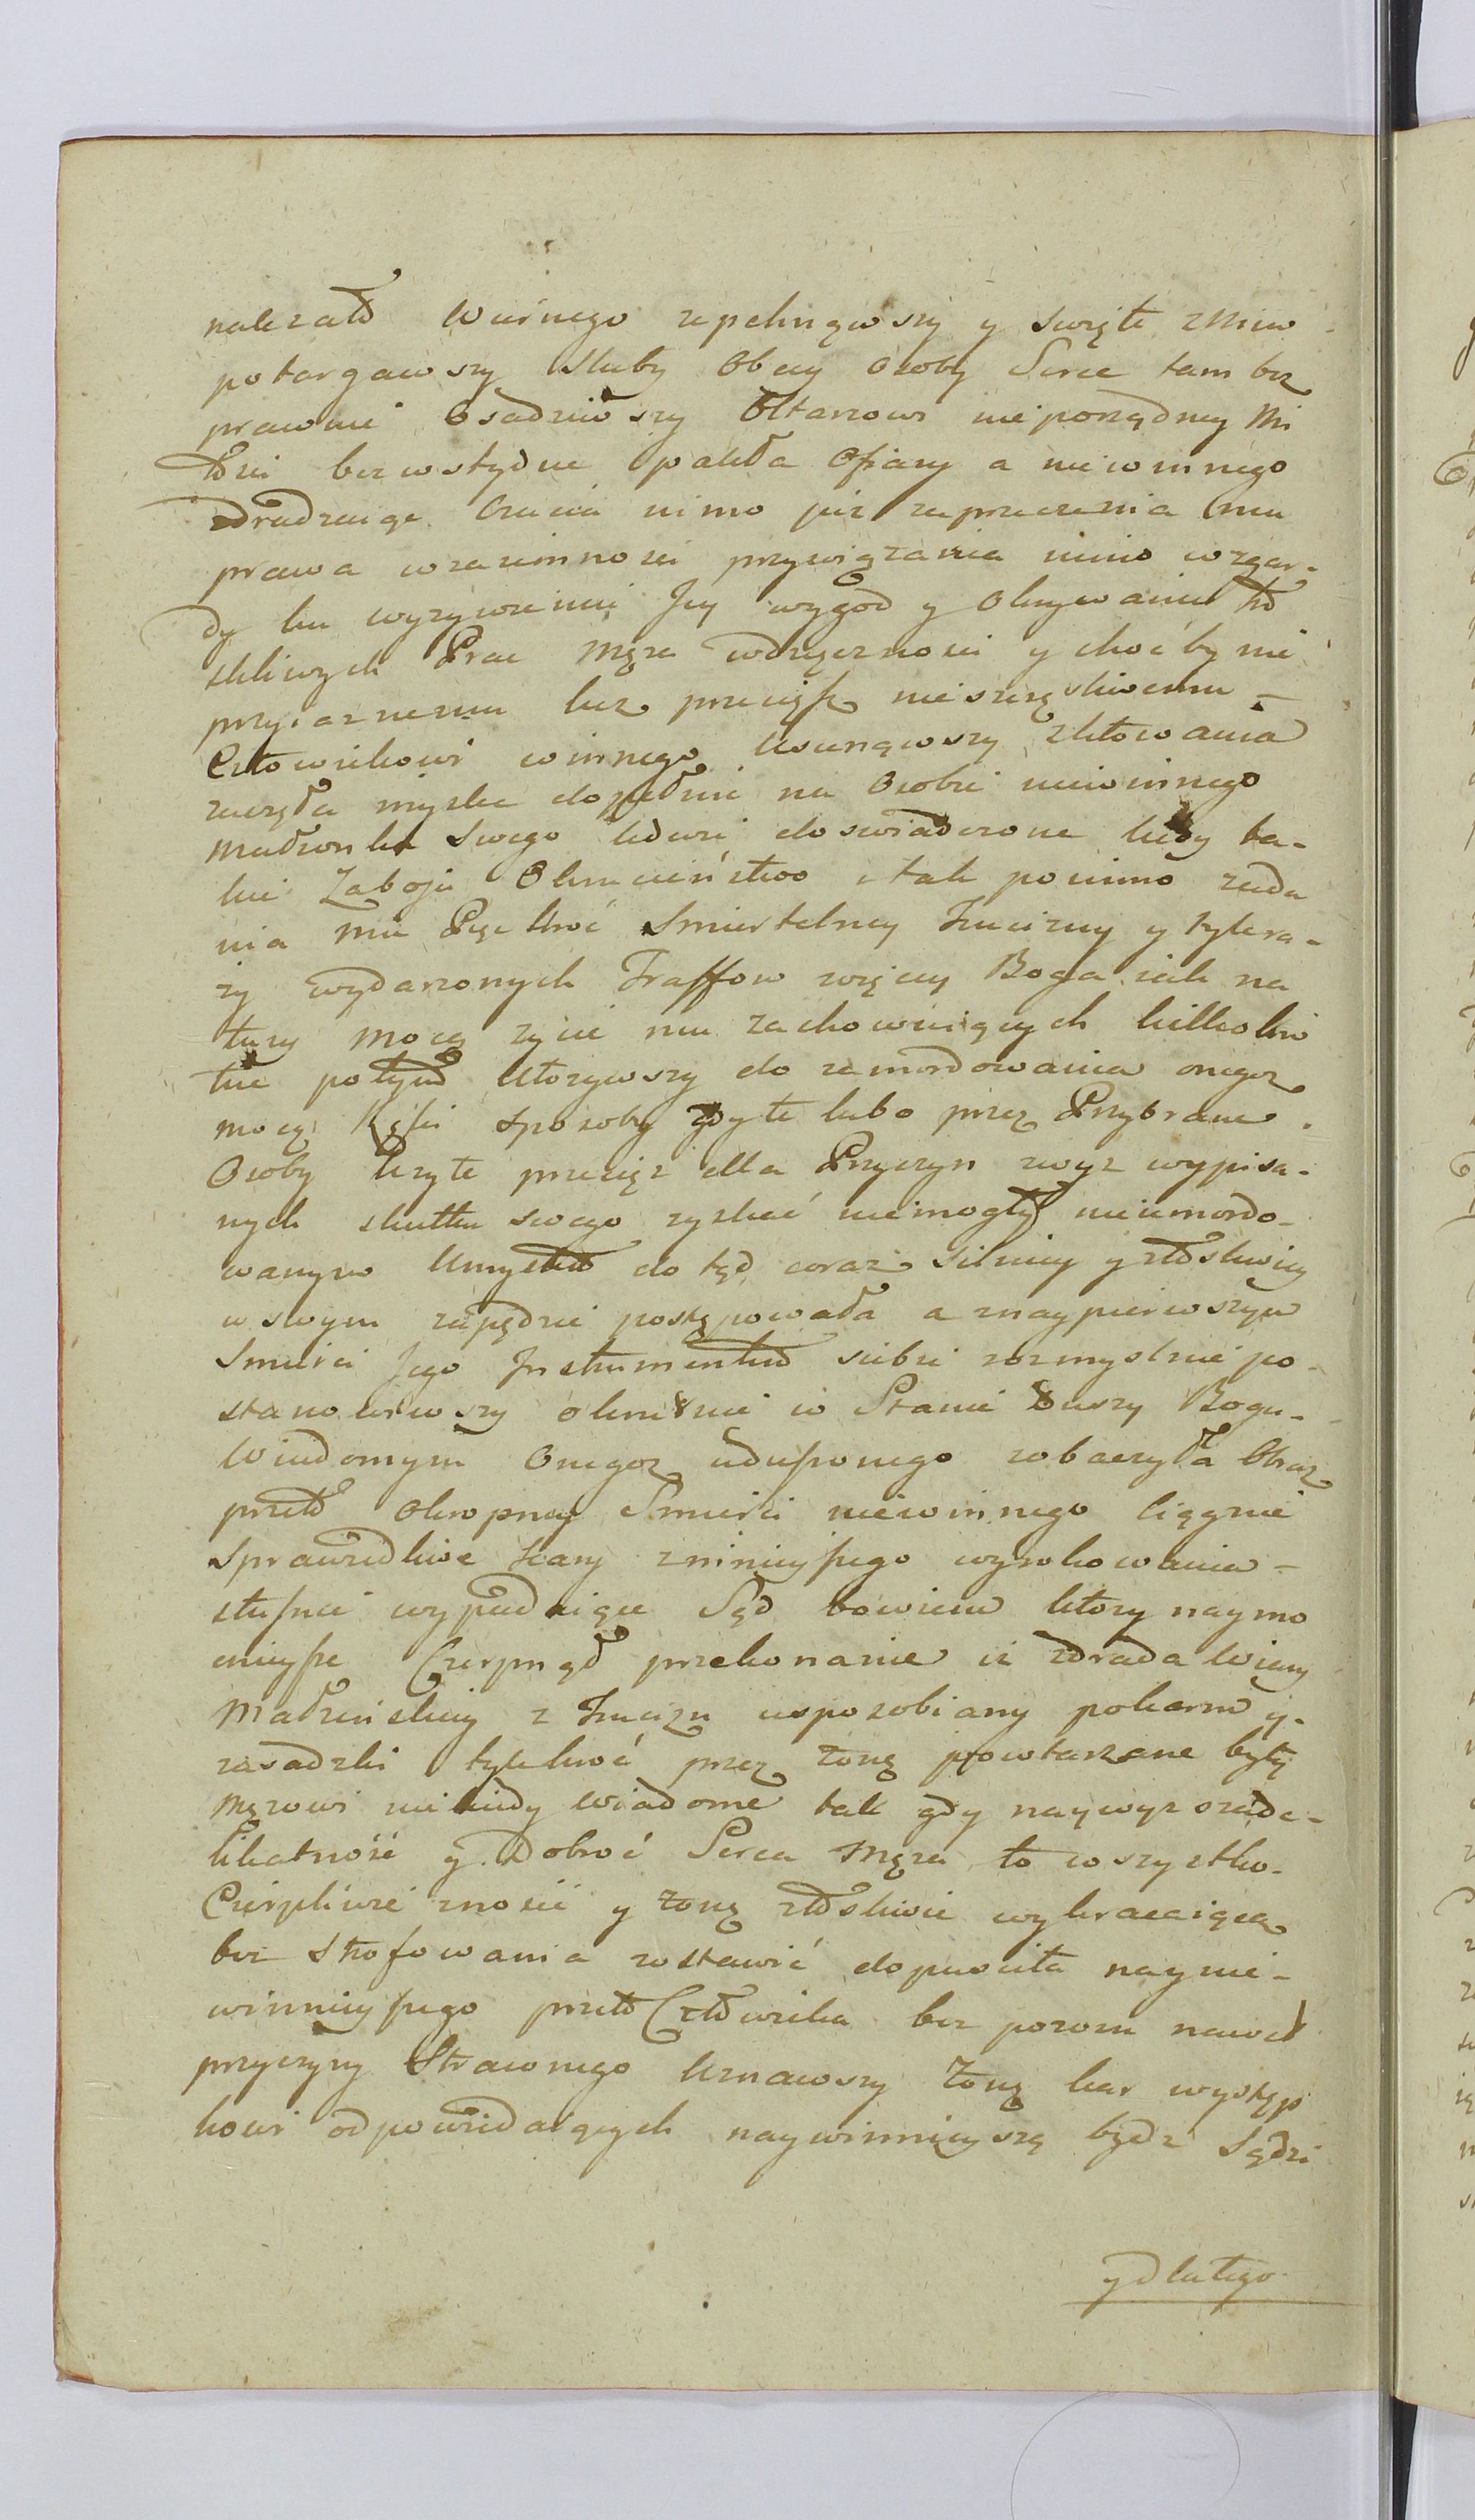 należało Wiernego zepchnąwszy y swięte z Niem
potargawszy Sluby Obcey Osoby Serce tam bez
prawnie Osadziwszy Ołtarzowi nieporządney Mi
łosci bezwstydne paliła Ofiary a niewinnego
zdradzaiąc Ozucia nimo już zaprzeczenia mu
prawa wzaiemnosci przywiązania nimo wzgar-
dy ku wyrywieniu Jey wygod y Okrywaniu tro
skliwych Prac Męża wdzięcznosci y choćby nie
przyiaznemu lecz przecięż nieszczęsliwemu -
Człowiekowi winnego Usunąwszy zlitowania
zaczęła mysleć dopełnić na Osobie niewinnego
małżonka Swego ledwie doswiadczone kiedy ta-
kie Zaboju Okrucieństwo i tak pomimo zada
nia mu Pięckroć Smiertelney Trucizny y tylera-
zy wydarzonych Traffow więcey Boga iak na
tury mocą życie mu zachowuiących kilkokro
tnie potym Użyzwszy do zamordowania onegoż
mocą Ręki sposoby gdy te lubo przez Przybrane
Osoby Użyte przecięż dla Przyczyn zwyż wypisa-
nych skutku swego zyskać niemogły nieumordo-
wanym Umysłem do tąd coraz silniey y złosliwiey
w swym zapędzie postępowała a znaypierwszym
Smierci Jego Instrumentem siebie rozmyslnie po-
stanowiwszy okrutnie w Stanie Duszy Bogu-
Wiadomym Onegoż uduszonego zobaczyła Obraz
przeto Okropney Smierci niewinnego ciągnie
Sprawiedliwe kary z ninieyszego wyrokowania -
słusznie wypadaiące Sąd bowiem ktory naymo
cnieysze Czerpnął przekonanie iż zdrada Wiary
Małżeńskiey z Trucizn usposobiany pokarm y-
zasadzki tylekroć przez żonę powtarzane były
Mężowi niekiedy Wiadome tak gdy naywyższa de-
likatność y Dobroć Serca Męża to wszystko-
Cierpliwie znosić y żonę złosliwie wykraczaiącą
bez strofowania zostawić dopusciła naynie-
winnieyszego przeto Człowieka bez pozoru nawet
przyczyny Strawnego Uznawszy żonę kar występ
kowi odpowiedaiących naywinnieyszą bydź Sądzi
y dlatego